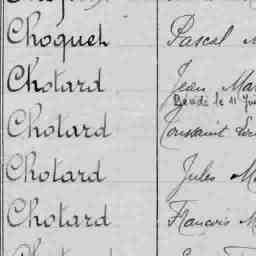 Choquet Pascal
Chotard Jean Mar
Décédé le 11 Jui
Chotard Toussaint
Chotard Jules M
Chotard François M